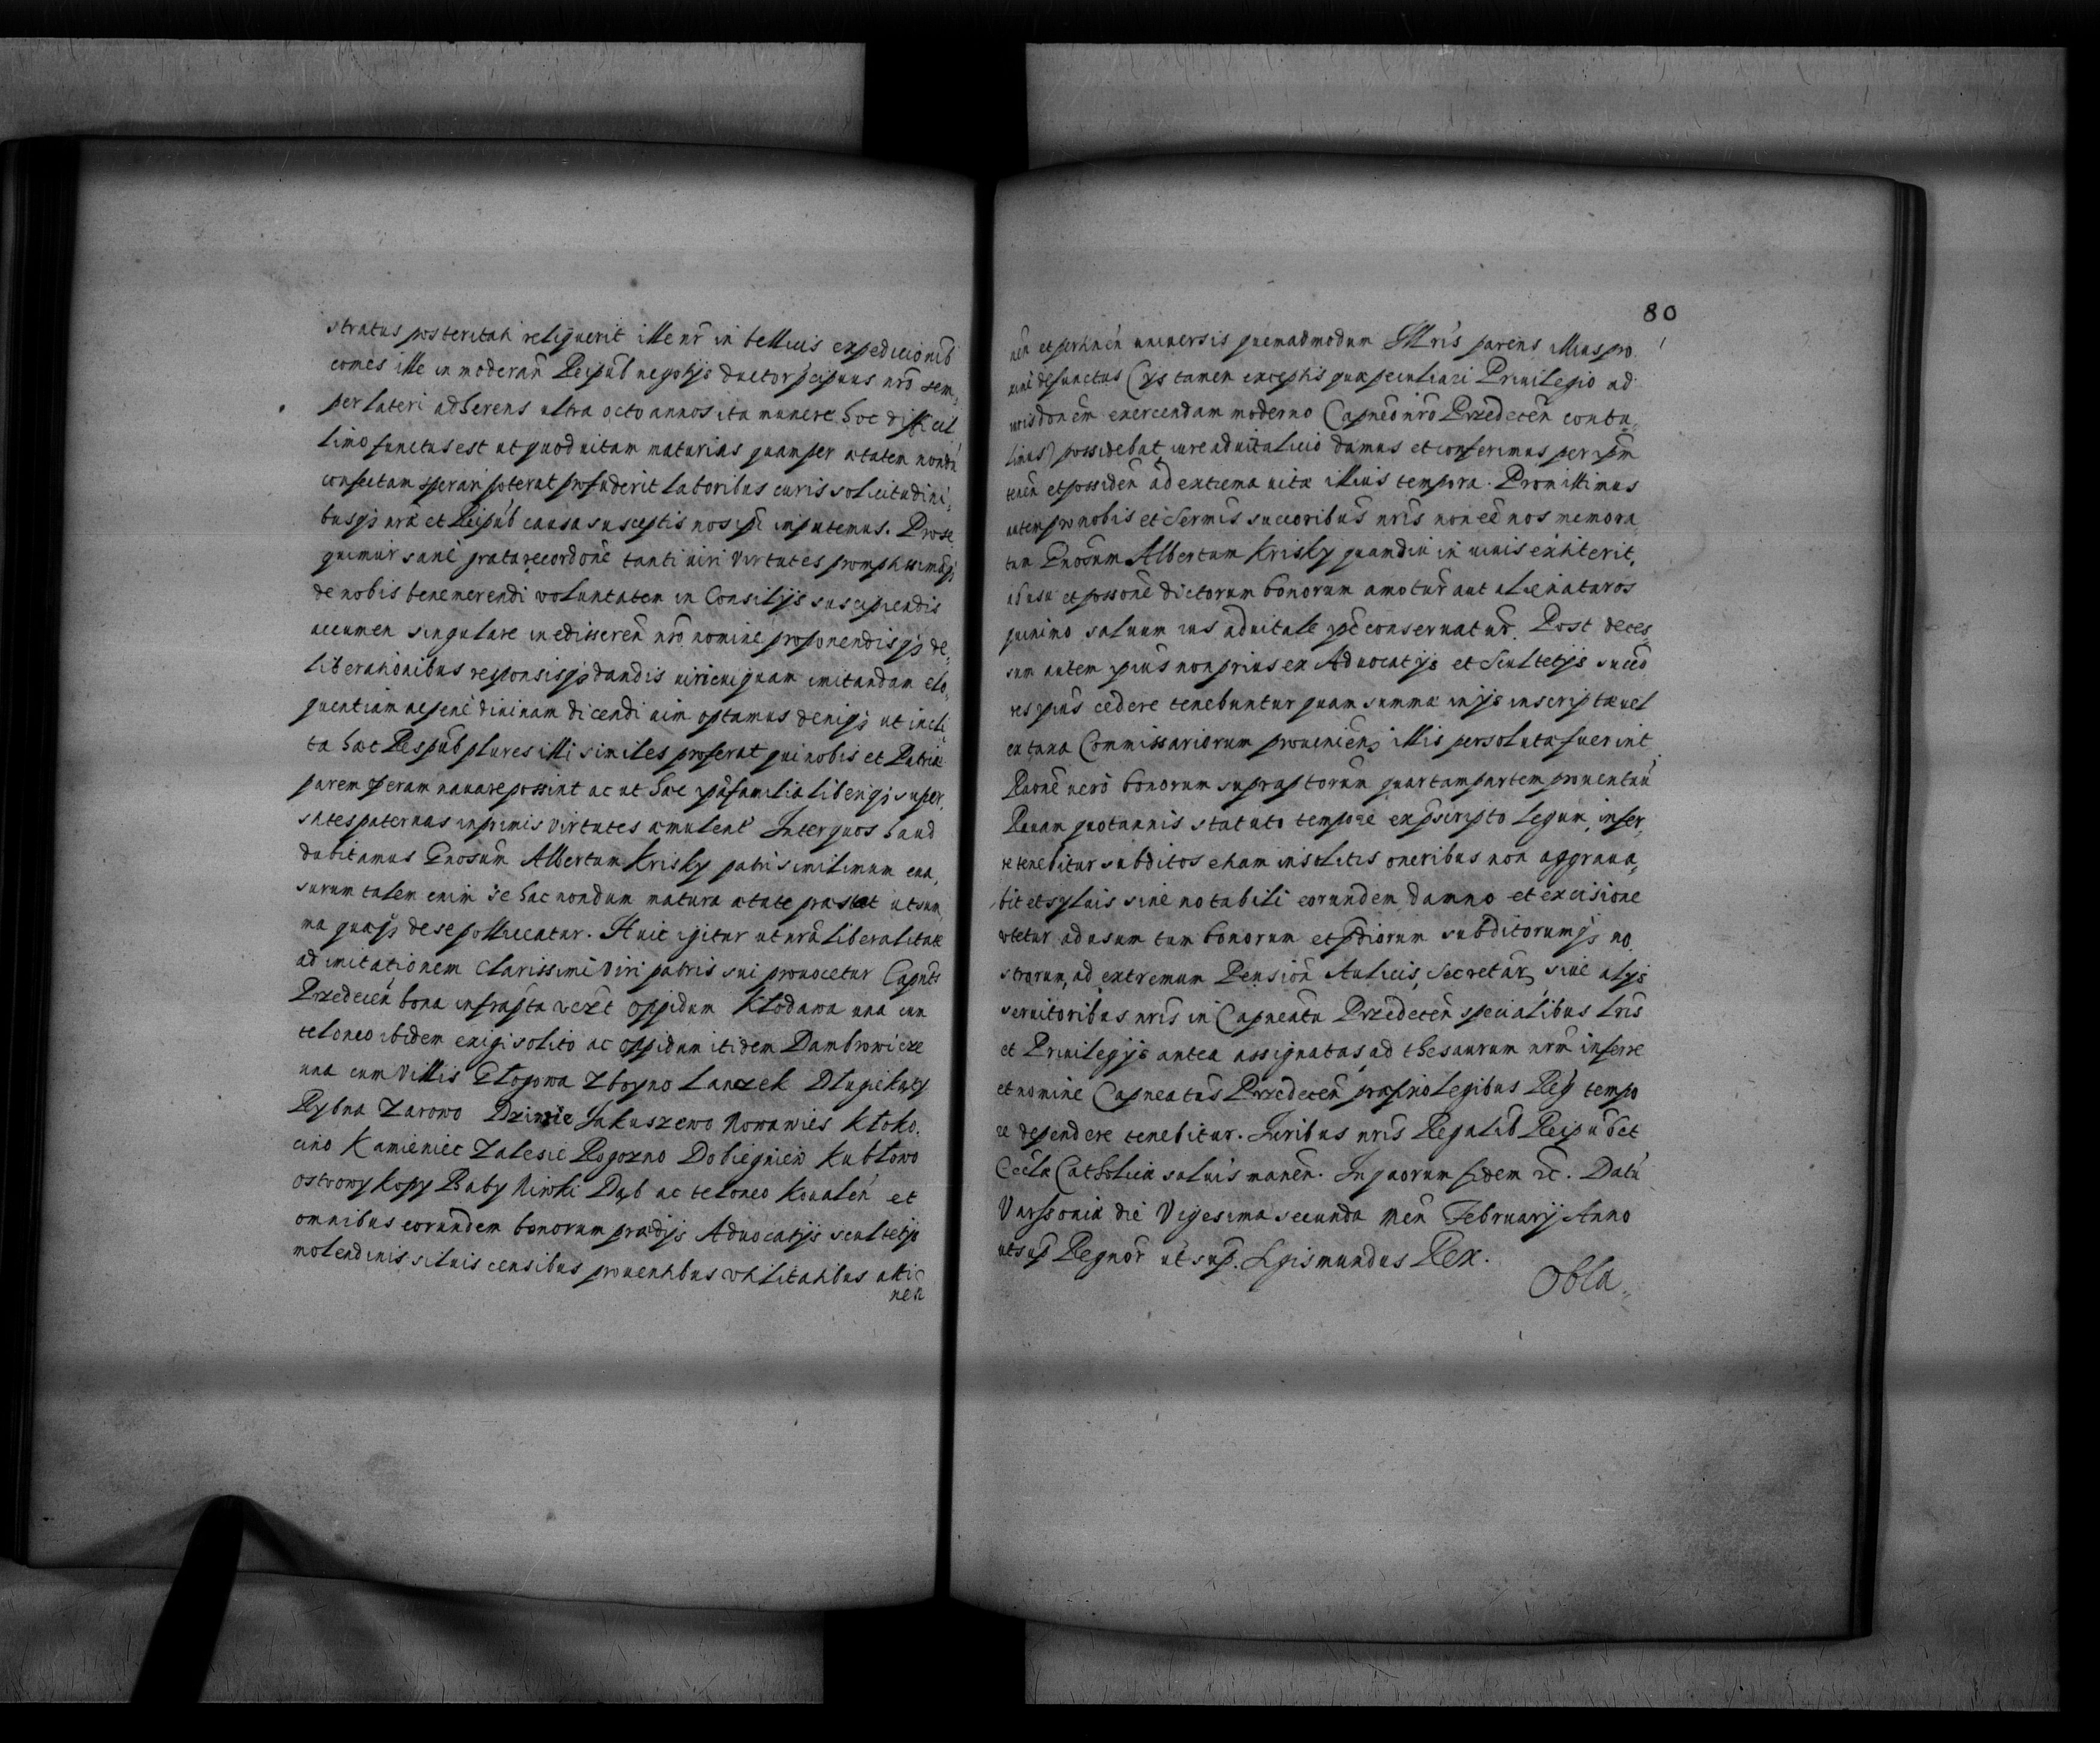 stratus posteritati reliquerit ille nr̃ in bellicis expedicionib
comes ille in moderan̄ Reipub̃ negotijs ductor p̃cipuus nr̃o sem„
per lateri adherens ultra octo annos ita munere hoc difficil
limo functus est ut quod uitam maturius quam per ætatem nondū
confectam sperari poterat profuderit laboribus curis solicitudini„
busq3 nr̃æ et Reipub̃ causa susceptis nos ip̃i imputemus. Prose
quimur sane grata recordōne tanti uiri virtutes promptissimāq3
de nobis benemerendi voluntatem in Consilijs suscipiendis
accumen singulare in edisseren̄ nr̃o nomine proponendisq3 de„
liberationibus responsisq3 dandis uiri cuiquam imitandam elo„
quentiam ac pene diuinam dicendi uim optamus deniq3 ut incli„
ta hæc Respub̃ plures illi similes proferat qui nobis et Patriæ
parem operam nauare possint ac ut hæc ip̃a familia liberiq3 super„
stites paternas inprimis virtutes æmulent̃ Inter quos haud
dubitamus Gnosum̃ Albertum Krisky patri similimum eua„
surum talem enim se hac nondum matura ætate præstat ut sum„
ma quæq3 de se polliceatur. Huic igitur ut nr̃a liberalitate
ad imitationem Clarissimi Viri patris sui prouocetur Capnt̃
Przedecen̄ bona infrap̃ta uidzt Oppidum Kłodawa una cum
teloneo ibidem exigi solito ac Oppidum itidem Dambrowicze
una cum Villis Głogowa Zboyno Lanczek Dlugiekąty
Rybna Zarowo Dziwie Jakuszewo Nowawies Kłoko„
cino Kamieniec Zalesie Rogozno Dobiegniew Kubłowo
ostrowy kopy Baby Niwki Dąb ac teloneo Koualen̄ et
omnibus eorundem bonorum prædijs Aduocatijs scultetijs
molendinis siluis censibus prouentibus vtilitatibus atti
nen̄
80
nen̄ et pertinen̄ uniuersis quemadmodum Illris parens illius pro„
xime defunctus (ijs tamen exceptis quæ peculiari Priuilegio ad
iurisdōnem exercendam moderno Capneo nr̃o Przedecen̄ contu„
limus) possidebat iure aduitalicio damus et conferimus per ip̃m
tenen̄ et possiden̄ ad extrema uitæ illius tempora. Promittimus
autem pro nobis et Serm̃is succoribus nr̃is non eē nos memora
tum Gnosum̃ Albertum Krisky quamdiu in uiuis exhiterit,
ab usu et possōne dictorum bonorum amotur̃ aut alienaturos
quinimo saluum ius aduitale ip̃i conseruatur̃. Post deces„
sum autem ip̃ius non prius ex Aduocatijs et Scultetijs succo
res ip̃ius cedere tenebuntur quam summæ in ijs inscriptæ uel
ex taxa Commissariorum proueniens illis persoluta fuerint
Raone uero bonorum supraptorum quartam partem prouentuū
Rauam quotannis statuto tempore ex p̃scripto legum infer„
re tenebitur subditos etiam insolitis oneribus non aggraua„
bit et syluis sine notabili eorundem damno et excisione
vtetur ad usum tum bonorum et p̃diorum subditorumq3 no
strorum, ad extremum Pension̄ Aulicis, Secretar̃ siue alijs
seruitoribus nr̃is in Capneatu Przedecen̄ specialibus lr̃is
et Priuilegijs antea assignatas ad thesaurum nr̃m inferre
et nomine Capneatus Przedecen̄ præfixo legibus Reg̃ tempo
re dependere tenebitur. Iuribus nr̃is Regalib̃ Reipub̃ et
Eccla Catholicæ saluis manen̄. In quorum fidem &c. Datū
Varssouiæ die Vigesima secunda men̄ Februarij Anno
ut sup̃ Regnor̃ ut sup̃. Sgismundus Rex.
Obla„